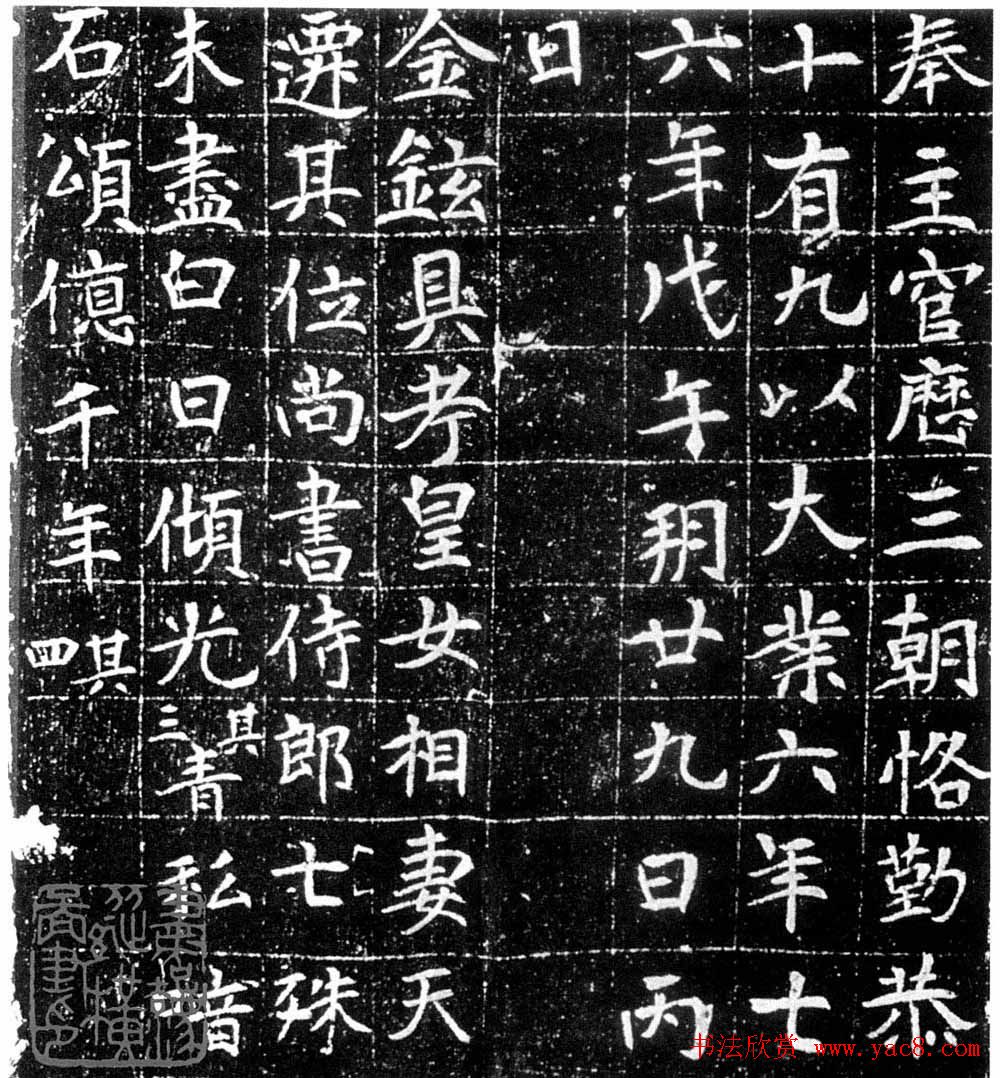 奉主官歷三朝恪勤恭
十有九以大業六年十
六年戊午朔廿九日丙
日
金鉉具考皇女相妻天
遷其位尚書侍郎七殊
未盡白日傾光其三青私
石頌億千年其四
书法欣赏 www.yac8.com